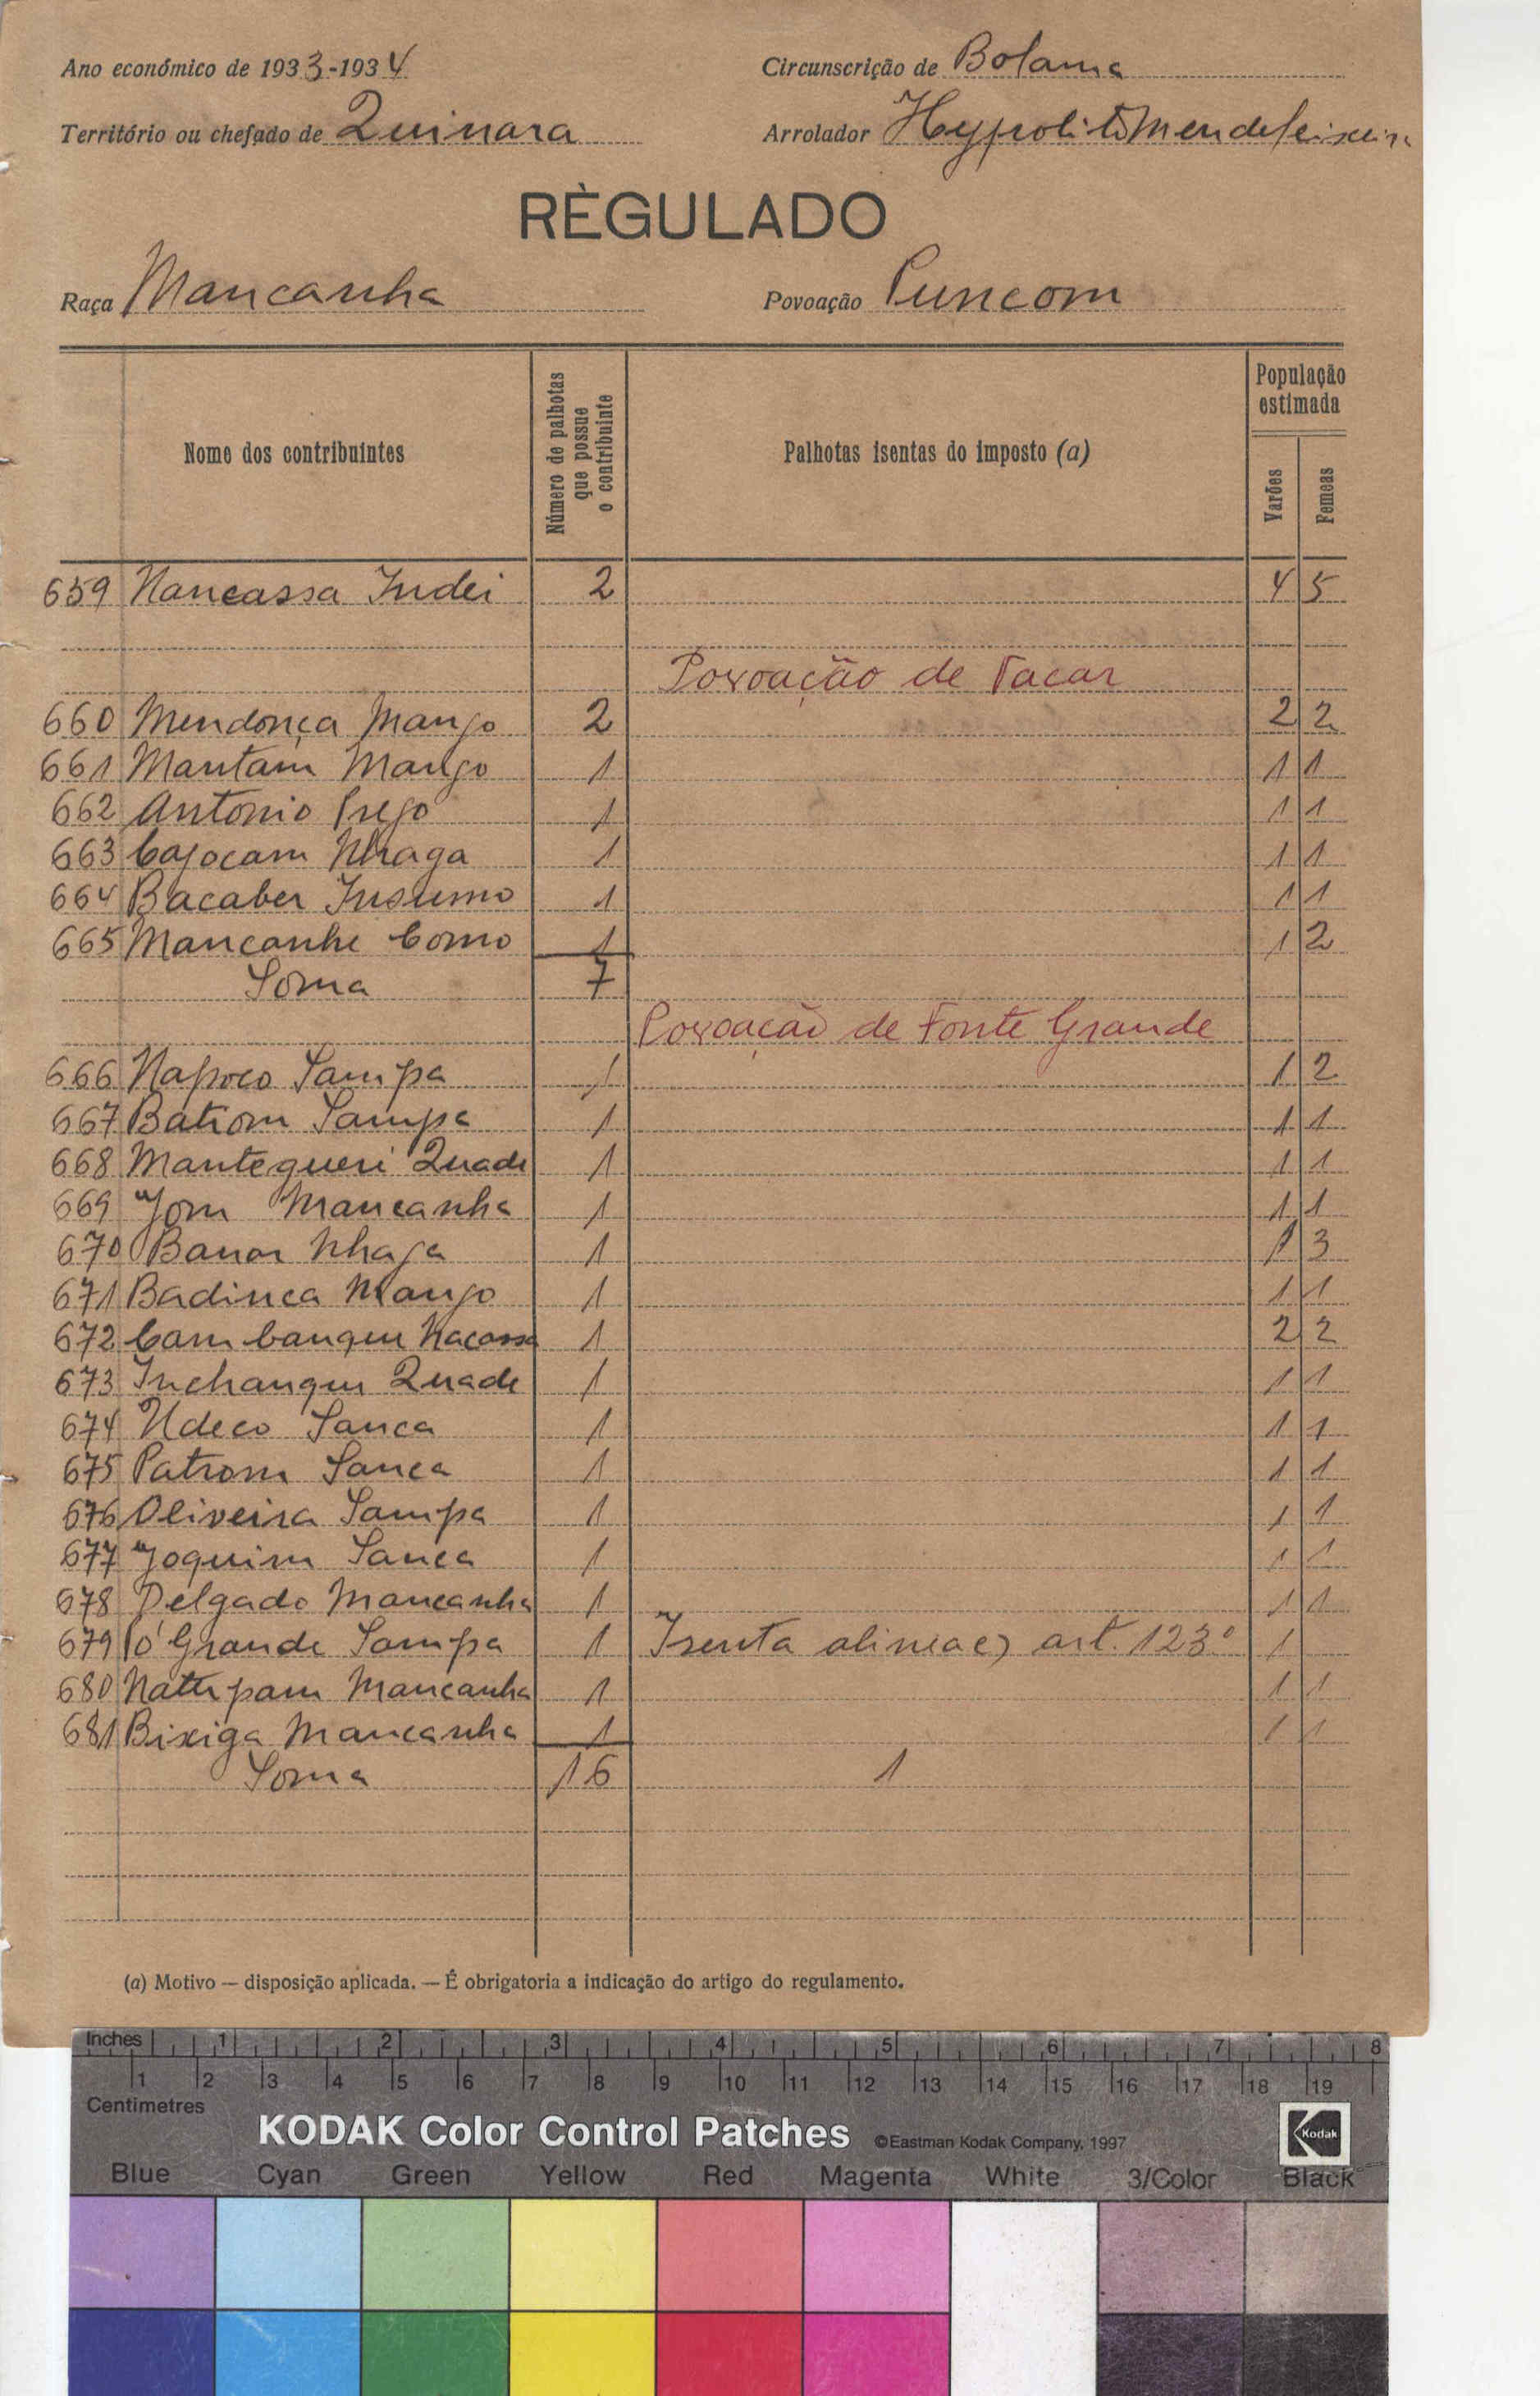 Ano económico de 1933-1934 Circunscrição de Bolama
Território ou chefado de Quinara Arrolador Hypolito Mendes Teixeira
RÈGULADO
Raça Mancanha Povoação Puncom
Nome dos contribuintes Número de palhotas que possue o contribuinte Palhotas isentas do imposto (a) População estimada Varões Femeas
659 Nancassa Indei 2 4 5
Povoação de Tacar
660 Mendonça Mango 2 2 2
661 Mantam Mango 1 1 1
662 Antonio Prego 1 1 1
663 Cajocam Nhaga 1 1 1
664 Bacaber Insumo 1 1 1
665 Mancanhe Como 1 1 2
Soma 7
Povoação de Fonte Grande
666 Napoco Sampa 1 1 2
667 Batiom Sampa 1 1 1
668 Mantegueri Quade 1 1 1
669 Jom Mancanha 1 1 1
670 Banor Nhaga 1 1 3
671 Badinca Mango 1 1 1
672 Cambanque Nacassa 1 2 2
673 Inchangue Quade 1 1 1
674 Udeco Sanca 1 1 1
675 Patrom Sanca 1 1 1
676 Oliveira Sampa 1 1 1
677 Joquim Sanca 1 1 1
678 Delgado Mancanha 1 1 1
679 Grande Sampa 1 Isenta alinea e) art. 123º 1
680 Natupam Mancanha 1 1 1
681 Bixiga Mancanha 1 1 1
Soma 16 1
(a) Motivo — disposição aplicada. — É obrigatoria a indicação do artigo do regulamento.
Inches 1 2 3 4 5 6 7 8
1 2 3 4 5 6 7 8 9 10 11 12 13 14 15 16 17 18 19
Centimetres
KODAK Color Control Patches ©Eastman Kodak Company, 1997 Kodak
Blue Cyan Green Yellow Red Magenta White 3/Color Black